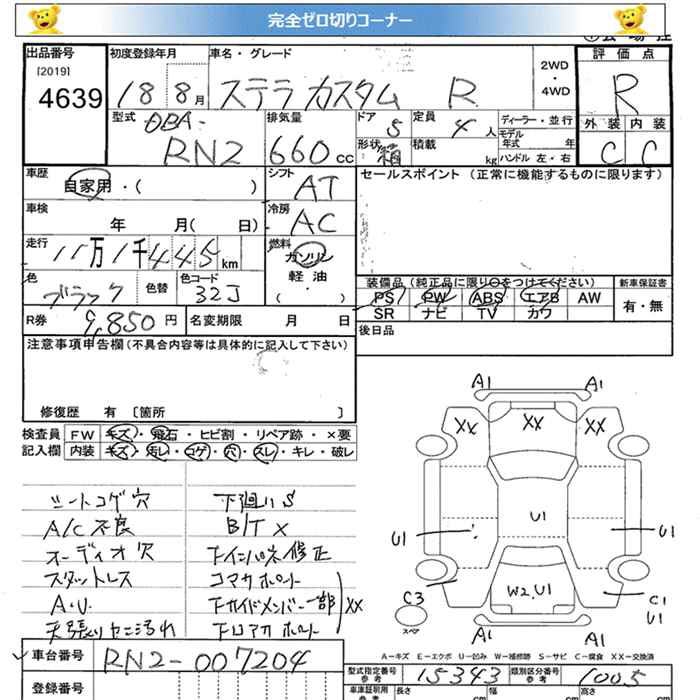 完全ゼロ切りコーナー
出品番号
[2019]
4639
初度登録年月
18 8月
車名・グレード
ステラ カスタム R
2WD
・
4WD
評価点
R
外装 内装
C C
型式 DBA-
RN2
排気量
660 cc
ドア 5
定員 4人
形状 箱
積載 kg
ディーラー・並行
モデル年式 年
ハンドル 左・右
車歴
自家用・( )
シフト
AT
セールスポイント (正常に機能するものに限ります)
車検
年 月( 日)
冷房
AC
走行
11万1千445km
燃料
ガソリン
軽油
( ・ )
色
ブラック
色替
色コード
32J
装備品(純正品に限り○をつけてください)
PS PW ABS エアB AW
SR ナビ TV カワ
新車保証書
有・無
R券 9,850円
名変期限 月 日
後日品
注意事項申告欄(不具合内容等は具体的に記入して下さい)
修復歴 有 〔箇所 〕
検査員 FW キズ・飛石・ヒビ割・リペア跡・×要
記入欄 内装 キズ・汚レ・コゲ・穴・スレ・キレ・破レ
シートコゲ穴
A/C不良
オーディオ穴
スタットレス
A・U.
天張りセニ汚れ
下廻りS
B/T X
Fインパネ修正
コマカホート
Fサイドメンバー一部 XX
Fロアカホート
A1 A1
XX XX
U1 U1 U1
W2.U1
C3 C1
U1
スペア
A1 A1
A-キズ E-エクボ U-凹み W-補修跡 S-サビ C-腐食 XX-交換済
車台番号 RN2-007204
型式指定番号
参考
15343
類別区分番号
参考
1005
登録番号
車庫証明用
参考
長さ cm
幅 cm
高さ cm